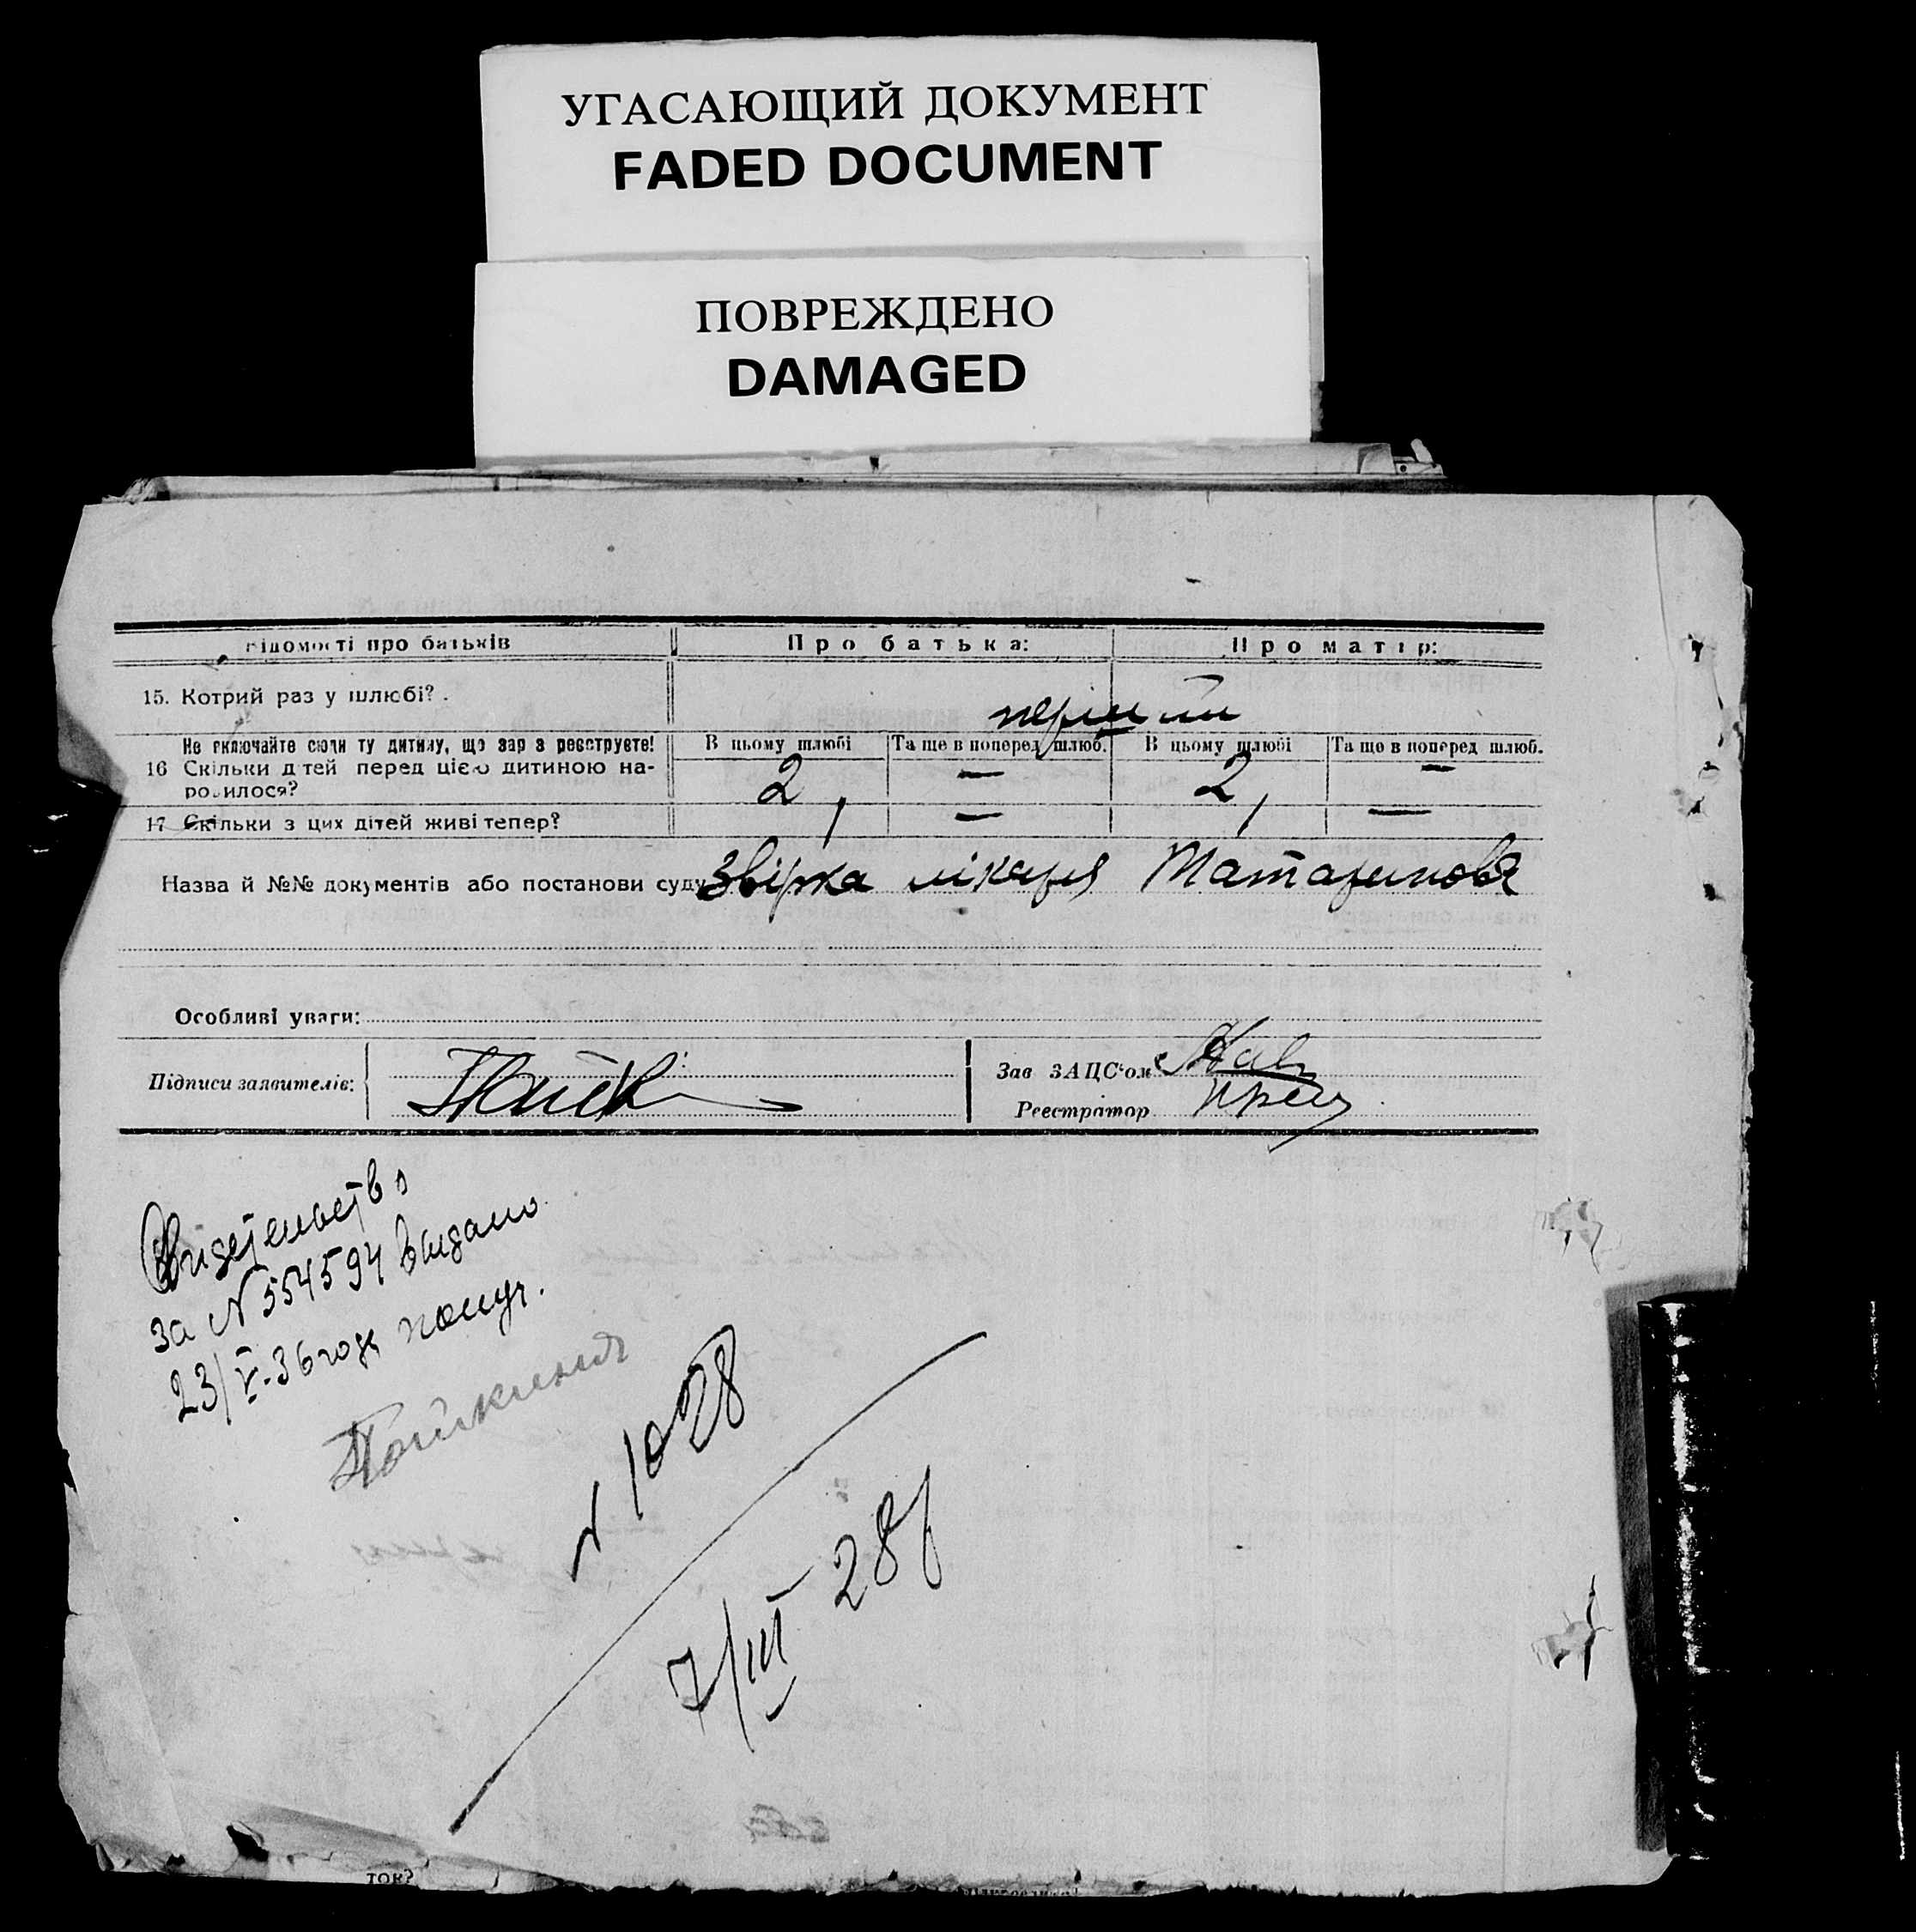 УГАСАЮЩИЙ ДОКУМЕНТ
FADED DOCUMENT
ПОВРЕЖДЕНО
DAMAGED
Відомості про батьків Про батька: Про матір:
15. Котрий раз у шлюбі?
перший
Не включайте сюди ту дитину, що зараз реєструєте! В цьому шлюбі Та ще в поперед шлюб. В цьому шлюбі Та ще в поперед шлюб.
16 Скільки дітей перед цією дитиною на-
родилося? 2, — 2, —
17 Скільки з цих дітей живі тепер? — —
Назва й №№ документів або постанови суду Звірка лікаря Татаринова
Особливі уваги:
Підписи заявителів:
Зав ЗАЦС'ом
Реєстратор
Свидетельство
за N 554594 выдано
23/V-36 года
N 1028
7/III 28
ток?